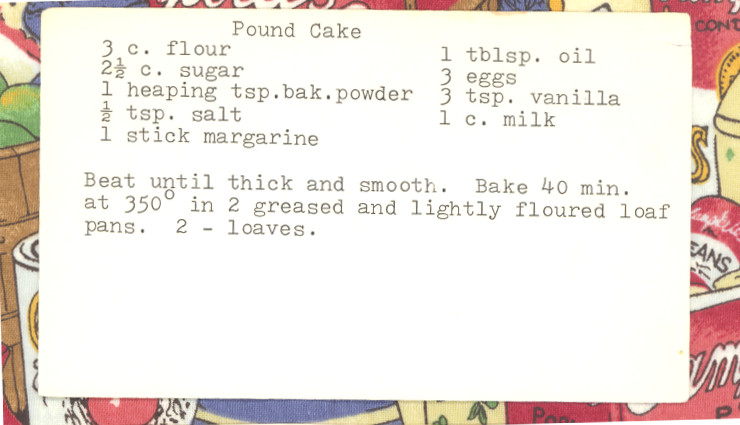 Pound Cake
3 c. flour
2½ c. sugar
1 heaping tsp.bak.powder
½ tsp. salt
1 stick margarine
1 tblsp. oil
3 eggs
3 tsp. vanilla
1 c. milk
Beat until thick and smooth. Bake 40 min.
at 350° in 2 greased and lightly floured loaf
pans. 2 - loaves.
CONT
Campbell's
EANS